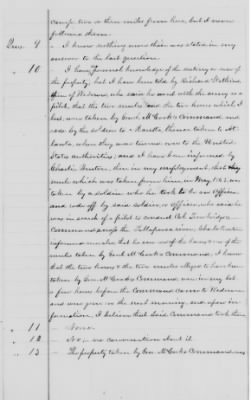 camps two or three miles from here, but I never
followed them.
Ques 9 - I know nothing more than was stated in my
answer to the last question.
" 10 I have personal knowledge of the military or use of
the property, but I have been told by Richard
of Wedowee, who said he went with the army as a
pilot, that the two mules and the two horses which I
lost, were taken by Genl McCook's Command, and
rode by the soldiers to Marietta, thence taken to At-
lanta, when they was turned over to the United
States authorities, and I have been informed by
Charles, then in my employment, that the
mule which was taken from him in May 1865, was
taken by a soldier who he took to be an officer
and rode off by said soldier, or officer, who said he
was in search of a pilot to conduct Col.
Command across the Tallapoosa river. Charles that
informed me also that he saw one of the horses & one of the
mules taken by Genl McCook's Command. I know
that the two horses & the two mules alleged to have been
taken by Genl McCook's Command were in my lot
a few hours before the Command came to Wedowee
and were gone in the next morning, and upon in-
formation, I believe that said Command took them
" 11 - None.
" 12 - No, no conversation about it
" 13 - The property taken by Gen McCook's Command was